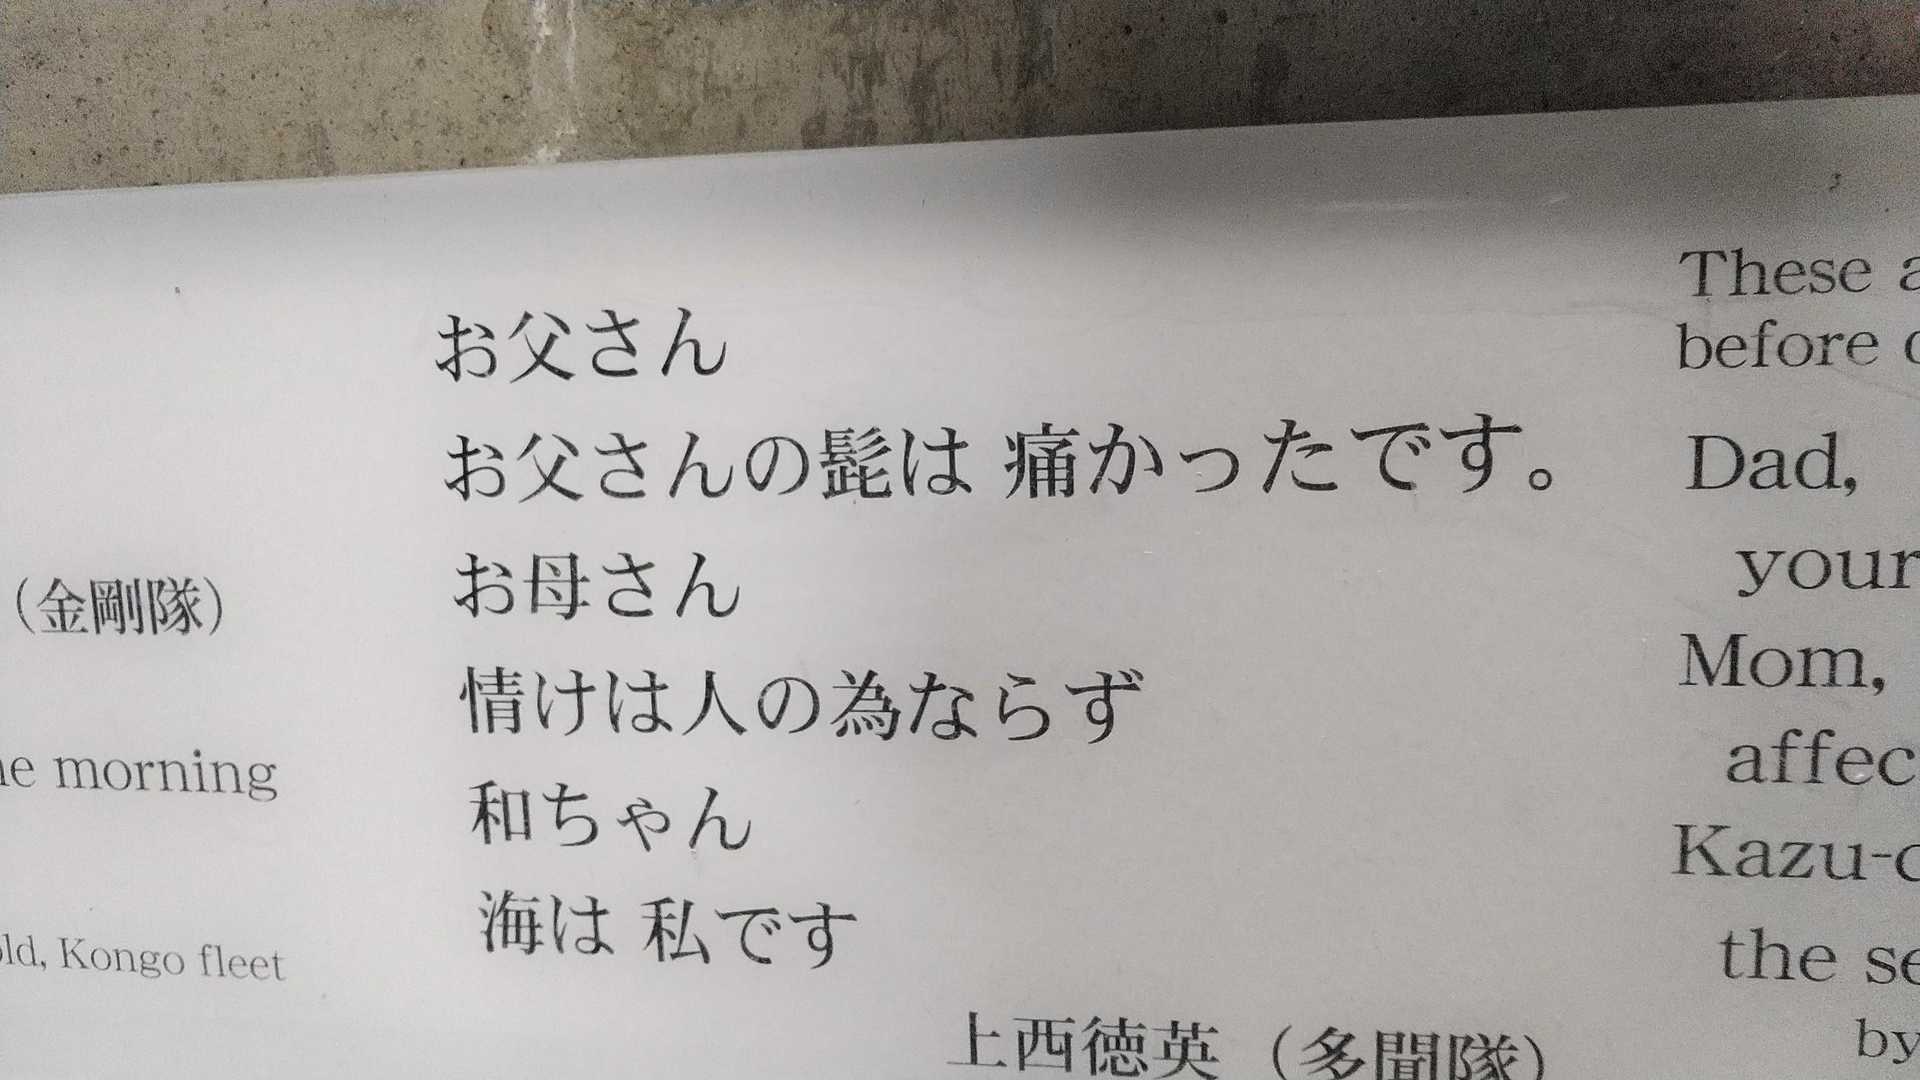 （金剛隊）
morning
Kongo fleet
お父さん
お父さんの髭は 痛かったです。
お母さん
情けは人の為ならず
和ちゃん
海は 私です
上西徳英（多聞隊）
These
before
Dad,
your
Mom,
Kazu-
the
by